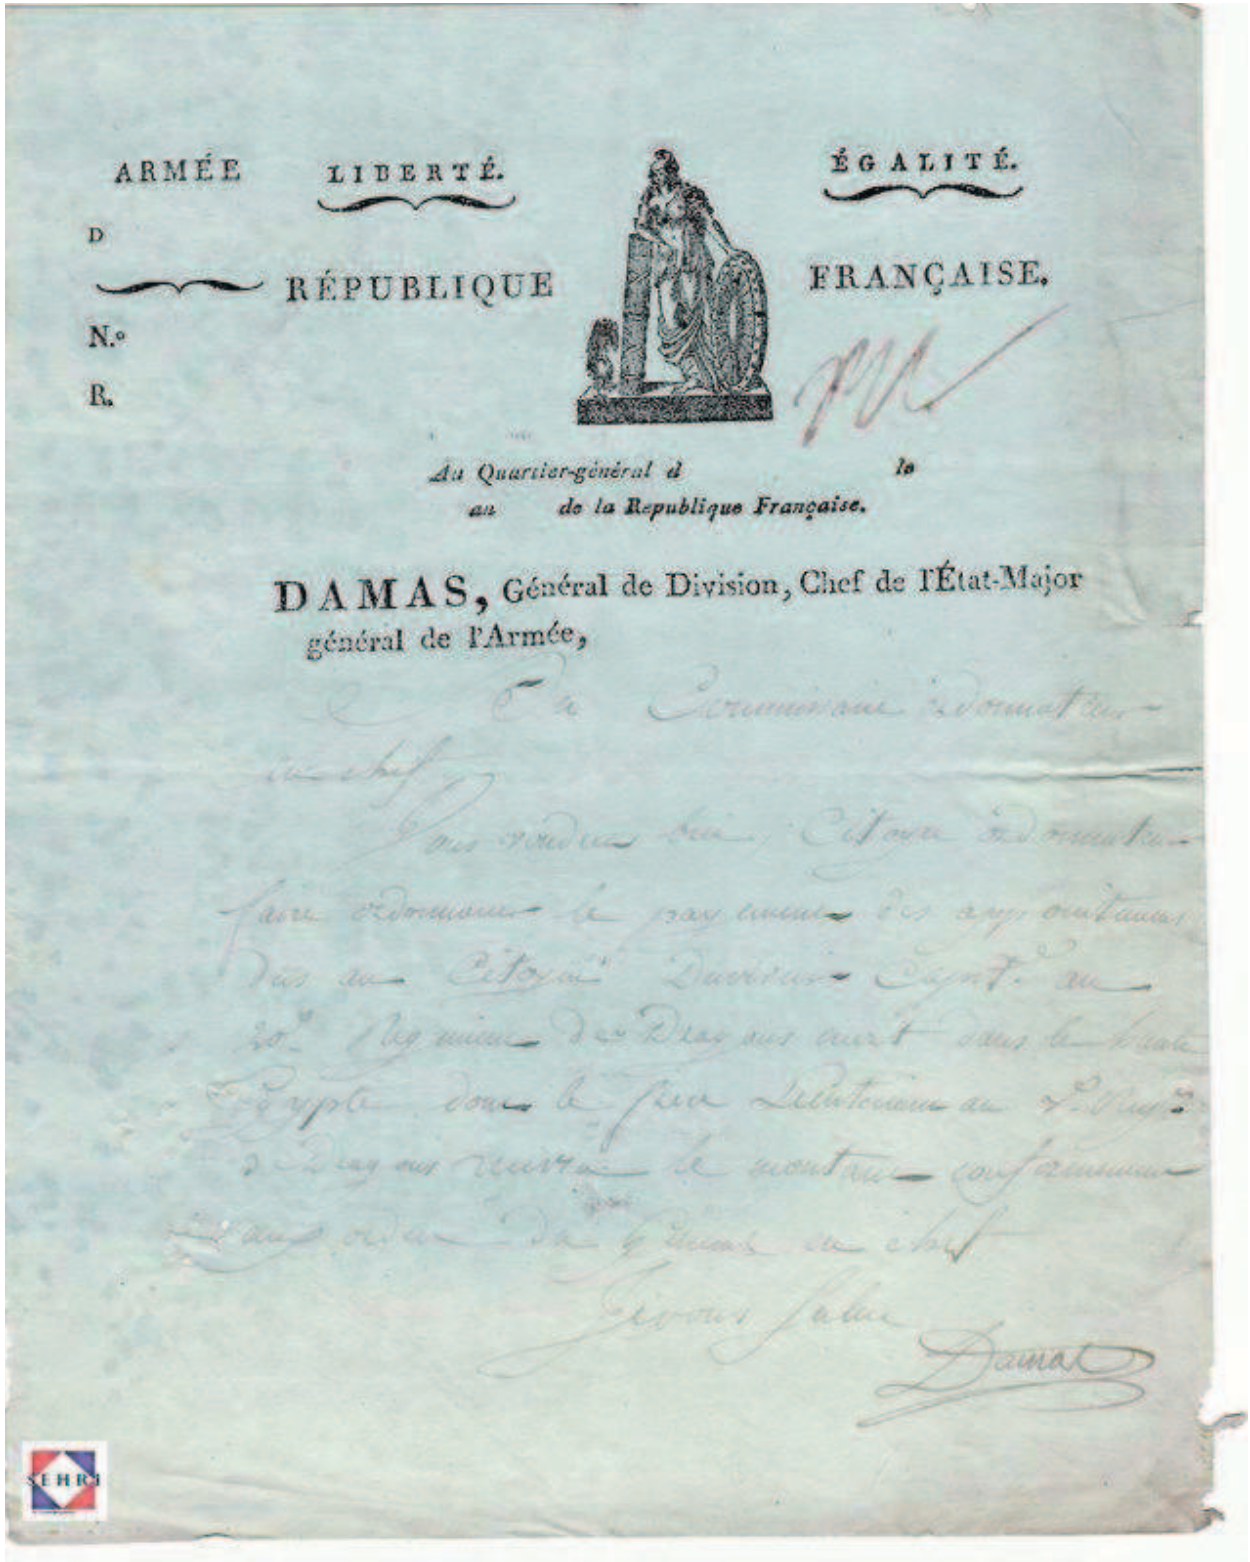 ARMÉE LIBERTÉ. ÉGALITÉ.
D
RÉPUBLIQUE FRANÇAISE.
N.º
R.
Au Quartier-général d le
an de la République Française.
DAMAS, Général de Division, Chef de l'État-Major
général de l'Armée,
Au Commissaire ordonnateur
en chef
Vous voudrez bien, Citoyen ordonnateur
faire ordonnancer le payement des appointemens
dus au Citoyen Capit.e au
20e Regiment de Dragons mort dans la haute
Egypte dont le frere Lieutenant au Reg.nt
de Dragons recevra le montant conformement
aux ordres du Général en chef
Je vous salue
Damas
SEHRI